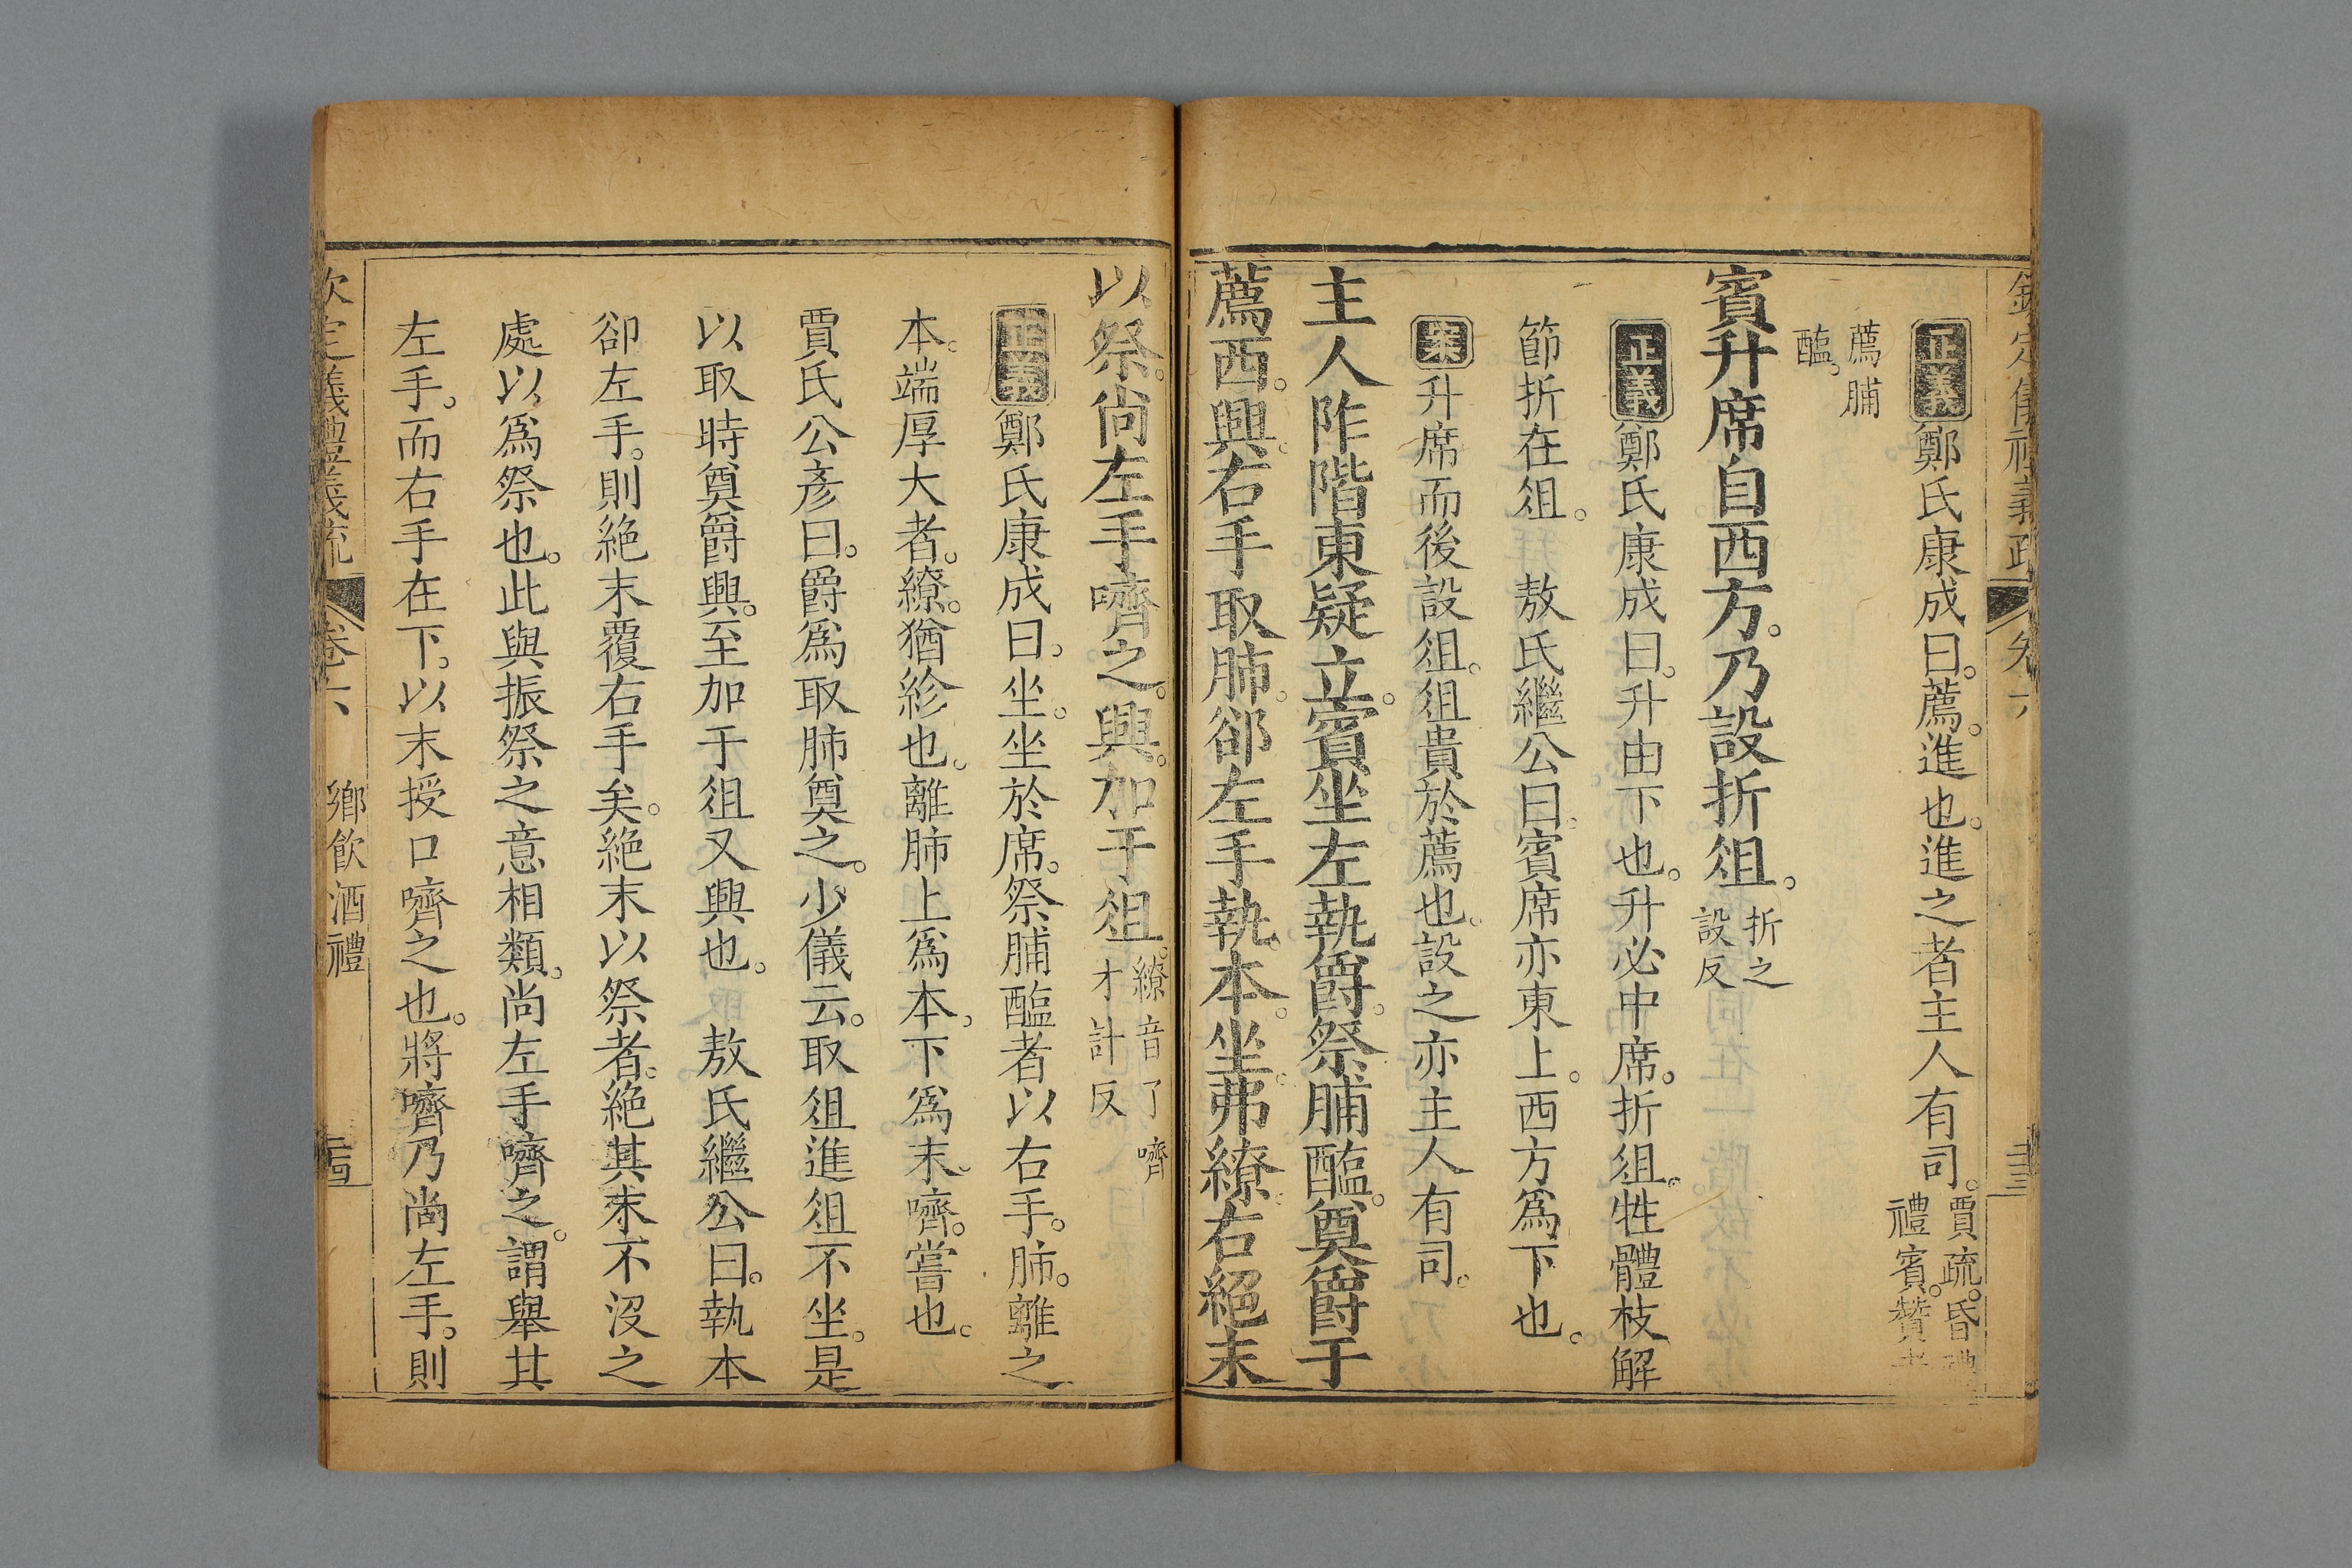 欽定儀禮義疏 卷六
正義鄭氏康成曰。薦。進也。進之者主人有司。賈疏。昏禮禮賓。贊者
薦脯醢。
賓升席自西方。乃設折俎。折之設反
正義鄭氏康成曰。升由下也。升必中席。折俎。牲體枝解
節折在俎。 敖氏繼公曰。賓席亦東上。西方爲下也。
案升席而後設俎。俎貴於薦也。設之亦主人有司。
主人阼階東疑立。賓坐左執爵。祭脯醢。奠爵于
薦西。興。右手取肺。卻左手執本。坐。弗繚。右絕末
以祭。尚左手嚌之。興。加于俎。繚音了嚌才計反
正義鄭氏康成曰。坐。坐於席。祭脯醢者以右手。肺。離之
本。端厚大者。繚。猶紾也。離肺上爲本。下爲末。嚌。嘗也。
賈氏公彥曰。爵爲取肺奠之。少儀云。取俎進俎不坐。是
以取時奠爵興。至加于俎又興也。 敖氏繼公曰。執本
卻左手。則絕末覆右手矣。絕末以祭者。絕其末不沒之
處以爲祭也。此與振祭之意相類。尚左手嚌之。謂舉其
左手。而右手在下。以末授口嚌之也。將嚌乃尚左手。則
欽定儀禮義疏 卷六 鄉飲酒禮